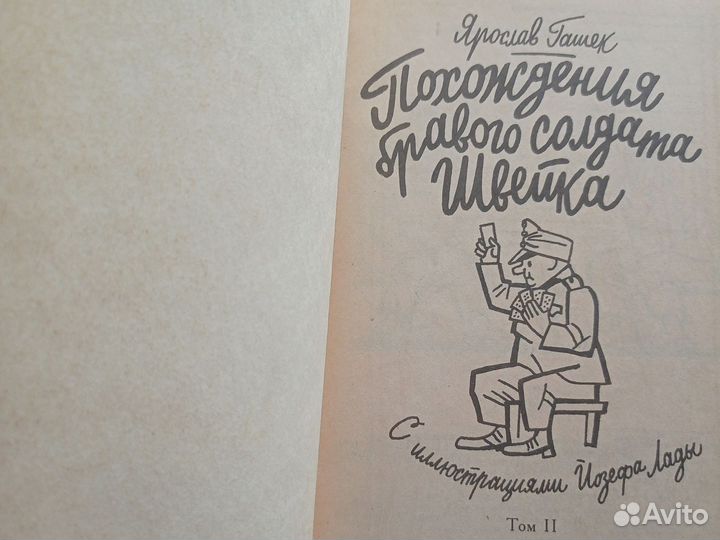 Ярослав Гашек
Похождения
бравого солдата
Швейка
С иллюстрациями Йозефа Лады
Том II
Avito